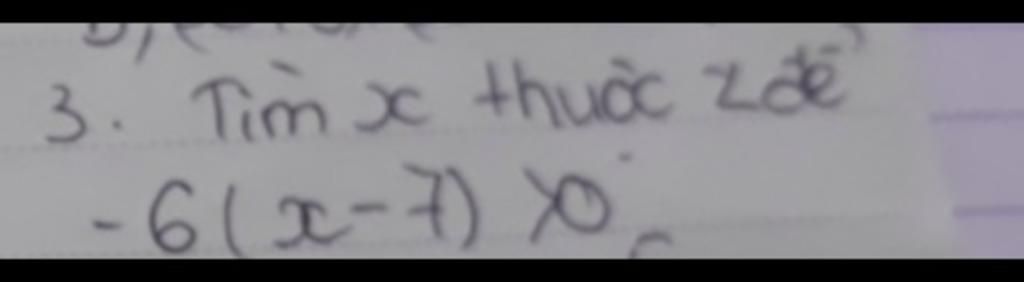 3. Tìm x thuộc Z để
-6(x-7) >0